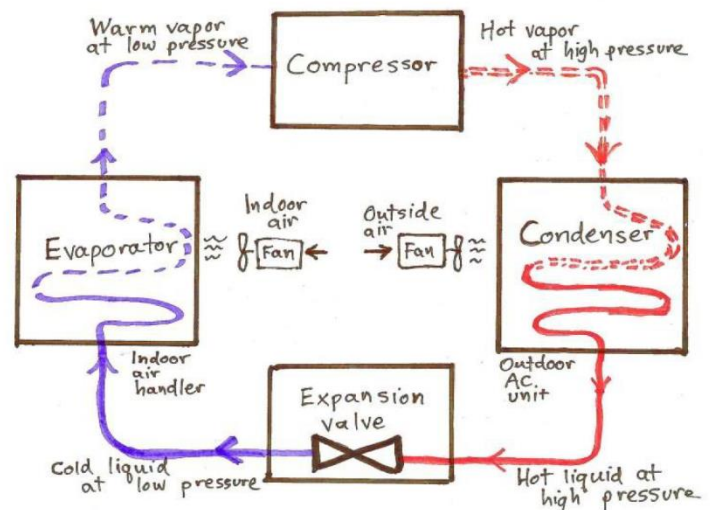 Warm vapor
at low pressure
Compressor
Hot vapor
at high pressure
Evaporator
Indoor
air
Fan
Outside
air
Fan
Condenser
Indoor
air
handler
Expansion
valve
Outdoor
AC
unit
Cold liquid
at low pressure
Hot liquid at
high pressure